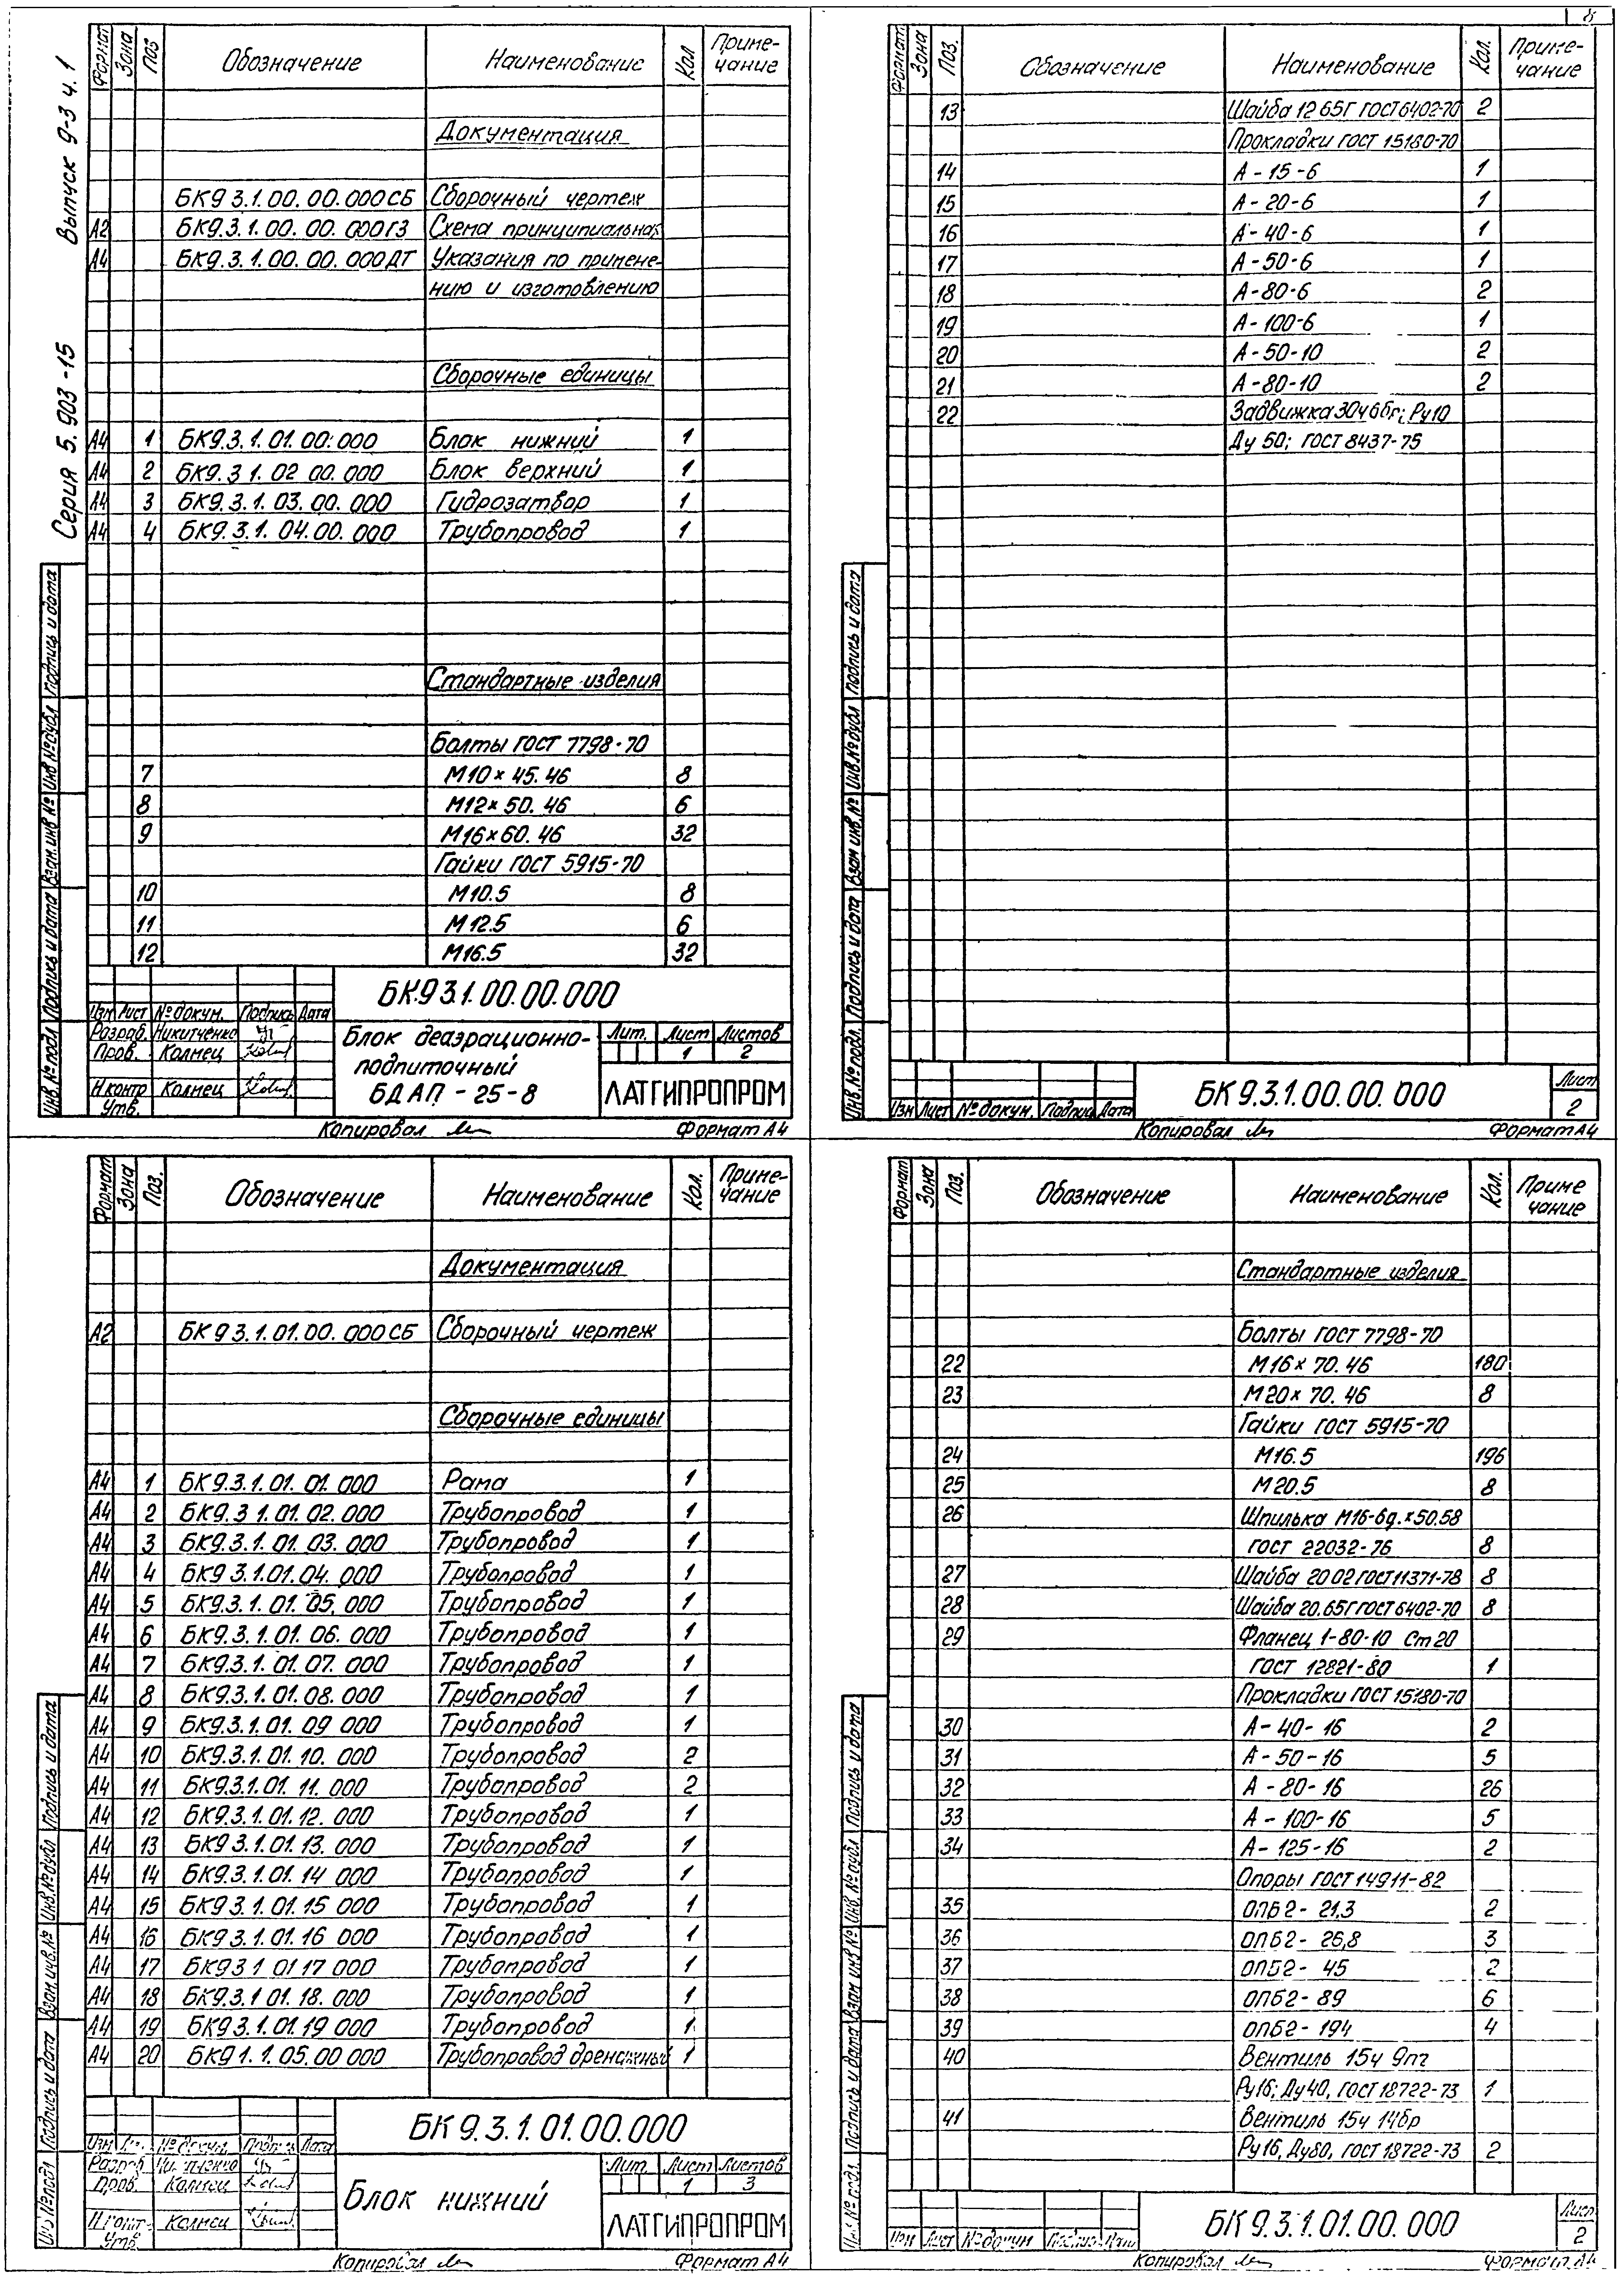 8
Серия 5.903-15 Выпуск 9-3 ч.1
Формат Зона Поз Обозначение Наименование Кол. Приме-
чание
Документация
БК9 3.1.00.00.000СБ Сборочный чертеж
А2 БК9.3.1.00.00.000ГЗ Схема принципиальная
А4 БК9.3.1.00.00.000ДТ Указания по примене-
нию и изготовлению
Сборочные единицы
А4 1 БК9.3.1.01.00.000 Блок нижний 1
А4 2 БК9.3 1.02 00.000 Блок верхний 1
А4 3 БК9.3.1.03.00.000 Гидрозатвор 1
А4 4 БК9.3.1.04.00.000 Трубопровод 1
Стандартные изделия
Болты ГОСТ 7798-70
7 М10×45.46 8
8 М12×50.46 6
9 М16×60.46 32
Гайки ГОСТ 5915-70
10 М10.5 8
11 М12.5 6
12 М16.5 32
Инв.№подл Подпись и дата Взам.инв № Инв №дубл Подпись и дата
БК.9 3.1.00.00.000
Изм Лист №докум. Подпись Дата
Разраб. Никитченко
Пров. Колмец
Н контр Колмец
Утв.
Блок деаэрационно-
подпиточный
БДАП-25-8
Лит. Лист Листов
1 2
ЛАТГИПРОПРОМ
Копировал Формат А4
Формат Зона Поз. Обозначение Наименование Кол. Приме-
чание
13 Шайба 12 65Г ГОСТ6402-70 2
Прокладки ГОСТ 15180-70
14 А-15-6 1
15 А-20-6 1
16 А-40-6 1
17 А-50-6 1
18 А-80-6 2
19 А-100-6 1
20 А-50-10 2
21 А-80-10 2
22 Задвижка 30ч6бг; Ру10
Ду 50; ГОСТ 8437-75
Инв.№подл. Подпись и дата Взам инв.№ Инв.№дубл Подпись и дата
Изм Лист №докум. Подпись Дата
БК9.3.1.00.00.000
Лист
2
Копировал Формат А4
Формат Зона Поз. Обозначение Наименование Кол. Приме-
чание
Документация
А2 БК9 3.1.01.00.000СБ Сборочный чертеж
Сборочные единицы
А4 1 БК9.3.1.01.01.000 Рама 1
А4 2 БК9.3 1.01.02.000 Трубопровод 1
А4 3 БК9.3.1.01.03.000 Трубопровод 1
А4 4 БК9 3.1.01.04.000 Трубопровод 1
А4 5 БК9.3.1.01.05.000 Трубопровод 1
А4 6 БК9.3.1.01.06.000 Трубопровод 1
А4 7 БК9.3.1.01.07.000 Трубопровод 1
А4 8 БК9.3.1.01.08.000 Трубопровод 1
А4 9 БК9.3.1.01 09 000 Трубопровод 1
А4 10 БК9.3.1.01.10.000 Трубопровод 2
А4 11 БК9.3.1.01 11.000 Трубопровод 2
А4 12 БК9.3.1.01.12.000 Трубопровод 1
А4 13 БК9.3.1.01 13.000 Трубопровод 1
А4 14 БК9.3.1.01 14 000 Трубопровод 1
А4 15 БК9 3.1.01 15 000 Трубопровод 1
А4 16 БК9 3.1.01.16 000 Трубопровод 1
А4 17 БК9 3 1 01 17 000 Трубопровод 1
А4 18 БК9.3.1 01.18.000 Трубопровод 1
А4 19 БК9 3.1.01.19 000 Трубопровод 1
А4 20 БК9 1.1.05.00 000 Трубопровод дренажный 1
Подпись и дата Взам.инв.№ Инв.№дубл Подпись и дата
БК 9.3.1.01.00.000
Изм №докум. Подпись Дата
Разраб.
Пров. Колмец
Н конт. Колмец
Утв.
Блок нижний
Лит. Лист Листов
1 3
ЛАТГИПРОПРОМ
Копировал Формат А4
Формат Зона Поз. Обозначение Наименование Кол. Приме
чание
Стандартные изделия
Болты ГОСТ 7798-70
22 М16×70.46 180
23 М20×70.46 8
Гайки ГОСТ 5915-70
24 М16.5 196
25 М20.5 8
26 Шпилька М16-6g.×50.58
ГОСТ 22032-76 8
27 Шайба 20 02 ГОСТ11371-78 8
28 Шайба 20.65Г ГОСТ 6402-70 8
29 Фланец 1-80-10 Ст20
ГОСТ 12821-80 1
Прокладки ГОСТ 15180-70
30 А-40-16 2
31 А-50-16 5
32 А-80-16 26
33 А-100-16 5
34 А-125-16 2
Опоры ГОСТ 14911-82
35 ОПБ2-21,3 2
36 ОПБ2-26,8 3
37 ОПБ2-45 2
38 ОПБ2-89 6
39 ОПБ2-194 4
40 Вентиль 15ч 9п
Ру16; Ду40, ГОСТ 18722-73 1
41 Вентиль 15ч 14бр
Ру16, Ду80, ГОСТ 18722-73 2
Подпись и дата Взам инв № Инв.№дубл Подпись и дата
Изм Лист №докум
БК 9.3.1.01.00.000
Лист
2
Копировал Формат А4